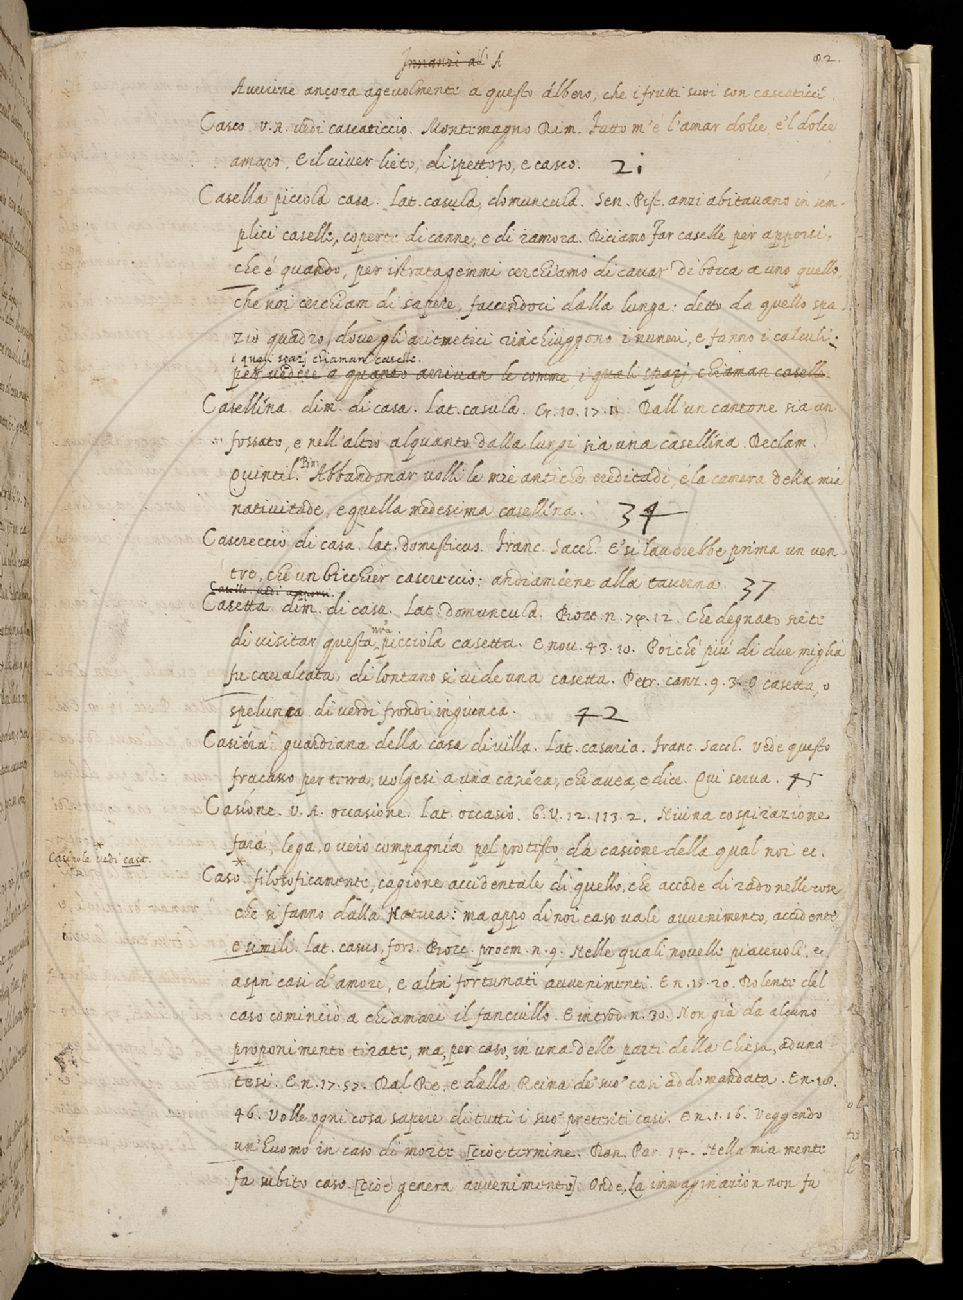 Innanzi all' A
82.
Avviene ancora agevolmente a questo albero, che i frutti suoi son cascaticci
Casco. V. A. vedi cascaticcio. Montemagno Rim. Tutto m'è l'amar dolce, e'l dolce
amaro, E il viver lieto, dispettoso, e casco. 21
Casella piccola casa. Lat. casula, domuncula. Sen. Pist. anzi abitavano in sem-
plici caselle, coperte di canne, e di ramora. Diciamo Far caselle per apporsi,
che è quando, per istratagemmi cerchiamo di cavar di bocca a uno quello,
che noi cerchiam di sapere, facendoci dalla lunga: detto da quello spa-
zio quadro, dove gli aritmetici rinchiuggono i numeri, e fanno i calculi:
i quali spazi chiaman caselle.
per vedere a quanto arrivan le somme i quali spazi chiaman caselle
Casellina. dim. di casa. Lat. casula. Cr. 10. 17. 11. Dall'un cantone sia un
fossato, e nell'altro alquanto dalla lungi sia una casellina. Declam.
Quintil. Abbandonar volli le mie antiche ereditadi, e la camera della mia
nativitade, e quella medesima casellina. 34
Casereccio di casa. lat. domesticus. Franc. Sacch. E' si laudrebbe prima un ven-
tre, che un bicchier casereccio: andiamcene alla taverna. 37
Casetta dim. di casa. Lat. domuncula. Bocc. n. 79. 12. Che degnato siete
di visitar questa nostra picciola casetta. E nov. 43. 10. Poichè più di due miglia
fu cavalcata, di lontano si vide una casetta. Petr. canz. 9. 3. O casetta, o
spelunca di verdi frondi ingiunca. 42
Casiera guardiana della casa di villa. Lat. casaria. Franc. Sacch. Vede questo
fracasso per terra, volgesi a una casiera, che avea, e dice. Qui serva. 45
Casione. V. A. occasione. Lat. occasio. G. V. 12. 113. 2. Niuna cospirazione
farà, lega, o vero compagnia pel protesto da casione della qual noi ec.
Casipole vedi casa.
Caso filosoficamente, cagione accidentale di quello, che accade di rado nelle cose
che si fanno dalla Natura: ma appo di noi caso vale avvenimento, accidente,
e simili. Lat. casus, fors. Bocc. proem. n. 9. Nelle quali novelle piacevoli, e
aspri casi d'amore, e altri fortunati avvenimenti. E n. 15. 20. Dolente del
caso cominciò a chiamare il fanciullo. E introd. n. 30. Non già da alcuno
proponimento tirate, ma, per caso, in una delle parti della Chiesa, aduna
tesi. E n. 17. 57. Dal Re, e dalla Reina de' suo' casi addomandata. E n. 18.
46. Volle ogni cosa sapere di tutti i suo' preteriti casi. E n. 1. 16. Veggendo
un'huomo in caso di morte [cioè termine. Dan. Par. 14. Nella mia mente
fa subito caso [cioè] genera avvenimento]. Onde, la immaginazion non fu